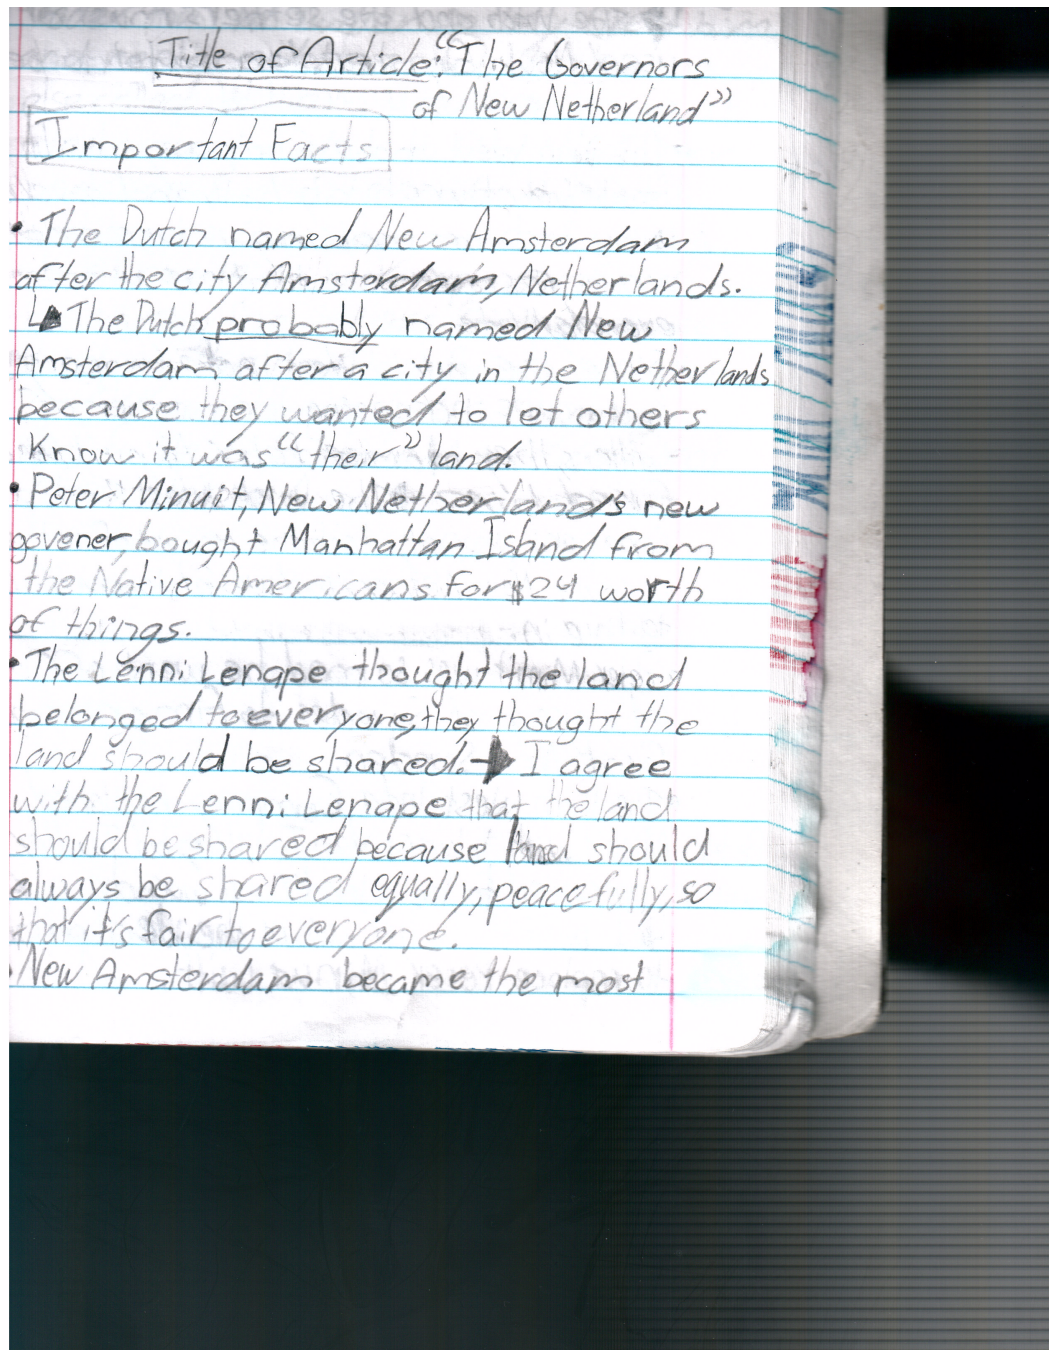 Title of Article: "The Governors
of New Netherland"
Important Facts
• The Dutch named New Amsterdam
after the city Amsterdam, Netherlands.
↳ The Dutch probably named New
Amsterdam after a city in the Netherlands
because they wanted to let others
know it was "their" land.
• Peter Minuit, New Netherland's new
govener, bought Manhattan Island from
the Native Americans for $24 worth
of things.
• The Lenni Lenape thought the land
belonged to everyone, they thought the
land should be shared. → I agree
with the Lenni Lenape that the land
should be shared because land should
always be shared equally, peacefully, so
that it's fair to everyone.
• New Amsterdam became the most